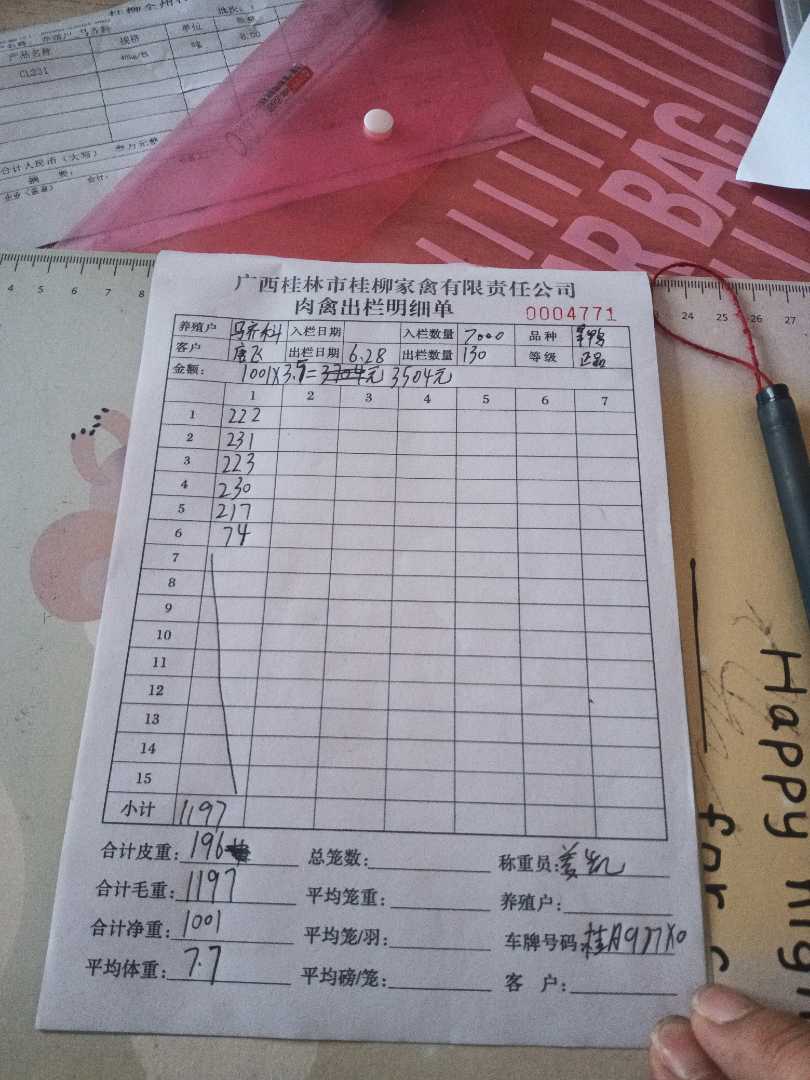 产品名称 规格 单位 数量
CL231 40kg/包 吨 8.00
合计人民币（大写）
广西桂林市桂柳家禽有限责任公司
肉禽出栏明细单 0004771
养殖户 马齐科 入栏日期 入栏数量 7000 品种
客户 唐飞 出栏日期 6.28 出栏数量 130 等级 正品
金额: 1001×3.5=3704元 3504元
1 2 3 4 5 6 7
1 222
2 231
3 223
4 230
5 217
6 74
7
8
9
10
11
12
13
14
15
小计 1197
合计皮重: 196 总笼数: 称重员: 姜凯
合计毛重: 1197 平均笼重: 养殖户:
合计净重: 1001 平均笼/羽: 车牌号码: 桂A977X0
平均体重: 7.7 平均磅/笼: 客户:
4 5 6 7 8
24 25 26 27
R BAG
Happy
for